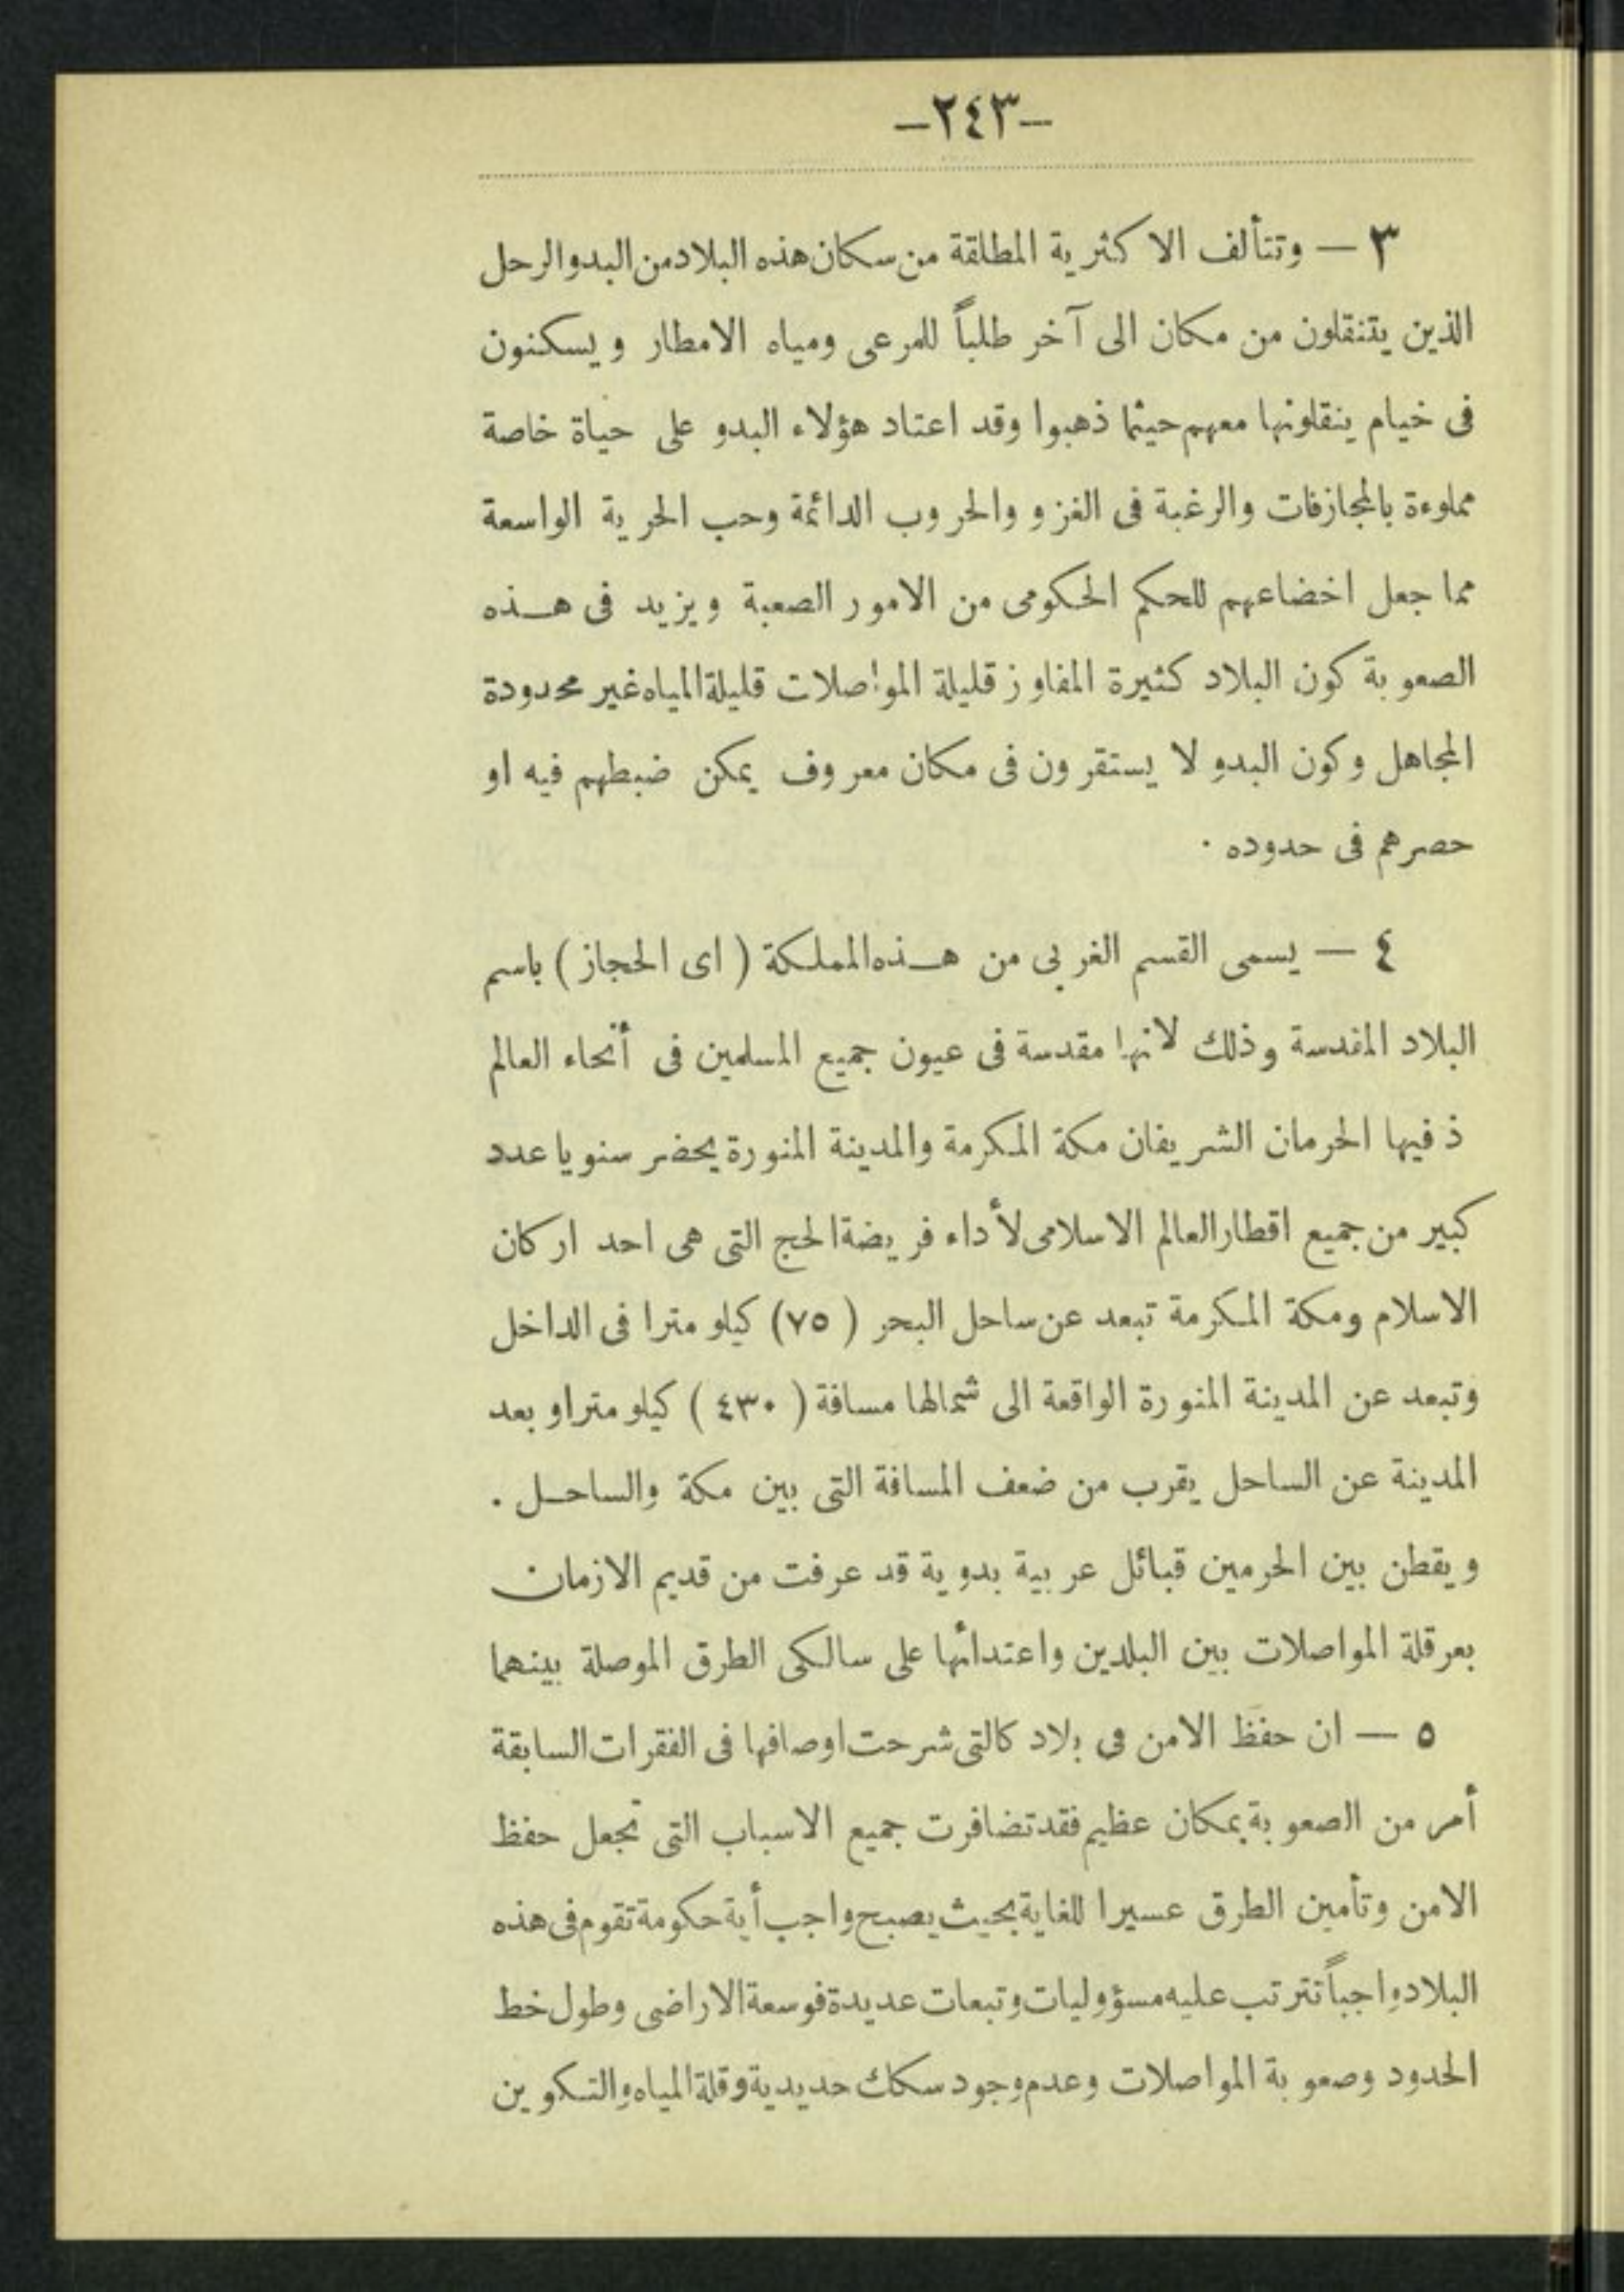 -٢٤٣-
٣ — وتتألف الاكثرية المطلقة من سكان هذه البلاد من البدو الرحل
الذين يتنقلون من مكان الى آخر طلباً للمرعى ومياه الامطار ويسكنون
فى خيام ينقلونها معهم حيثما ذهبوا وقد اعتاد هؤلاء البدو على حياة خاصة
مملوءة بالمجازفات والرغبة فى الغزو والحروب الدائمة وحب الحرية الواسعة
مما جعل اخضاعهم للحكم الحكومى من الامور الصعبة ويزيد فى هذه
الصعوبة كون البلاد كثيرة المفاوز قليلة المواصلات قليلة المياه غير محدودة
المجاهل وكون البدو لا يستقرون فى مكان معروف يمكن ضبطهم فيه او
حصرهم فى حدوده .
٤ — يسمى القسم الغربى من هذه المملكة ( اى الحجاز ) باسم
البلاد المقدسة وذلك لانها مقدسة فى عيون جميع المسلمين فى أنحاء العالم
ذ فيها الحرمان الشريفان مكة المكرمة والمدينة المنورة يحضر سنويا عدد
كبير من جميع اقطار العالم الاسلامى لأداء فريضة الحج التى هى احد اركان
الاسلام ومكة المكرمة تبعد عن ساحل البحر ( ٧٥ ) كيلو مترا فى الداخل
وتبعد عن المدينة المنورة الواقعة الى شمالها مسافة ( ٤٣٠ ) كيلو مترا وبعد
المدينة عن الساحل يقرب من ضعف المسافة التى بين مكة والساحل .
ويقطن بين الحرمين قبائل عربية بدوية قد عرفت من قديم الازمان
بعرقلة المواصلات بين البلدين واعتدائها على سالكى الطرق الموصلة بينهما
٥ — ان حفظ الامن فى بلاد كالتى شرحت اوصافها فى الفقرات السابقة
أمر من الصعوبة بمكان عظيم فقد تضافرت جميع الاسباب التى تجعل حفظ
الامن وتأمين الطرق عسيرا للغاية بحيث يصبح واجب أية حكومة تقوم فى هذه
البلاد واجباً تترتب عليه مسؤوليات وتبعات عديدة فوسعة الاراضى وطول خط
الحدود وصعوبة المواصلات وعدم وجود سكك حديدية وقلة المياه والتكوين